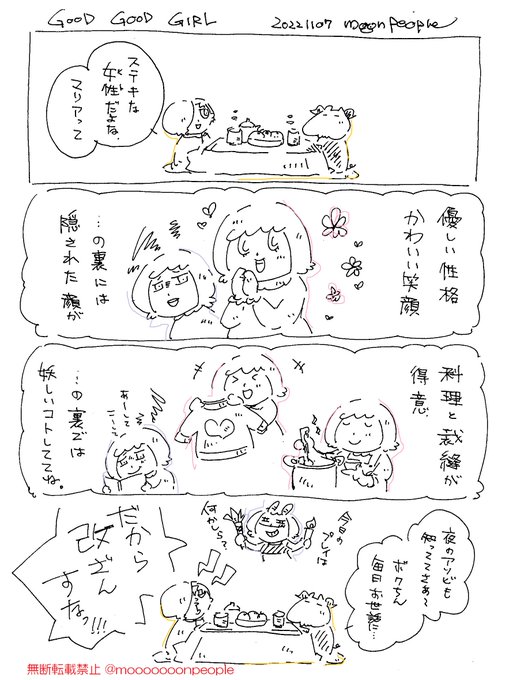 GOOD GOOD GIRL
20221107 moonpeople
ステキな
女性だよな、
ヒト
マリアって
優しい性格
かわいい笑顔
…の裏には
隠された顔が
料理と裁縫が
得意
…の裏では
妖しいコトしててね。
あーして
こーして
夜のアソビも
知っててさぁ〜
ボクちん
毎日お世話に…
今日の
プレイは
何かしら?
だから
改ざん
すなっ!!!
無断転載禁止 @mooooooonpeople